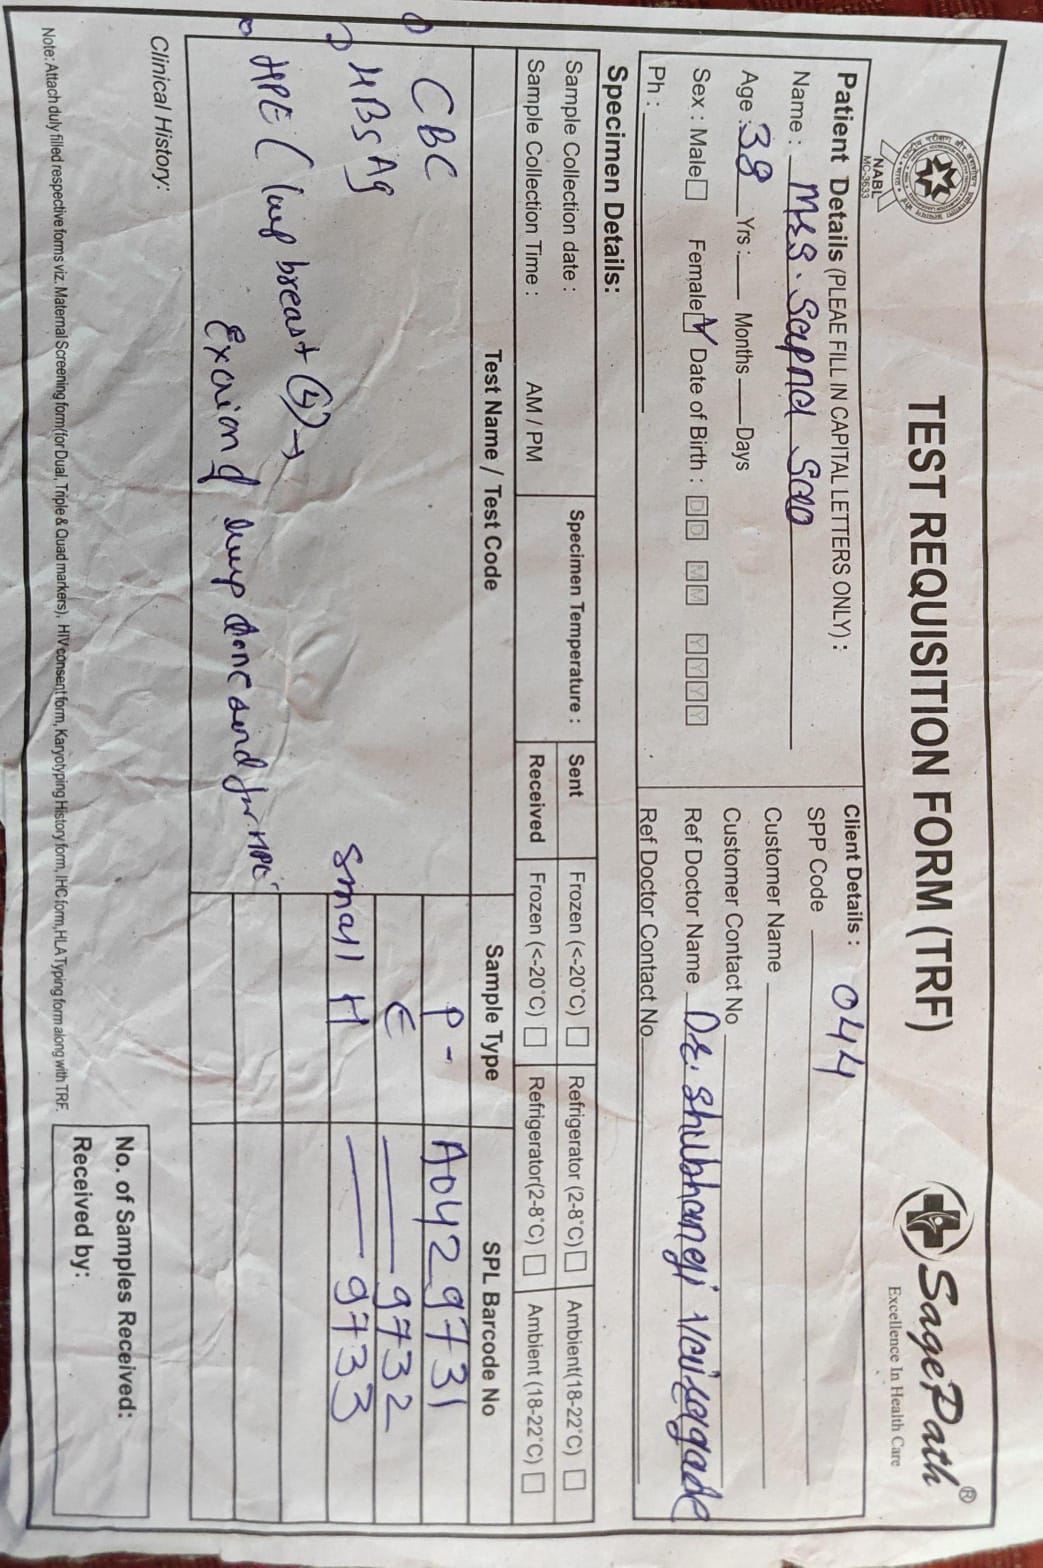 NABL
MC-2633
TEST REQUISITION FORM (TRF)
SagePath®
Excellence In Health Care
Patient Details (PLEAE FILL IN CAPITAL LETTERS ONLY) :
Name : Mrs. Sapna Sao
Age : 38 Yrs: Months Days
Sex : Male Female Date of Birth : D D M M Y Y Y Y
Ph :
Client Details : 044
SPP Code
Customer Name
Customer Contact No
Ref Doctor Name Dr. Shubhangi
Ref Doctor Contact No.
Specimen Details:
Sample Collection date : Specimen Temperature : Sent Frozen (<-20°C) Refrigerator (2-8°C) Ambient(18-22°C)
Sample Collection Time : AM / PM Received Frozen (<-20°C) Refrigerator(2-8°C) Ambient (18-22°C)
Test Name / Test Code Sample Type SPL Barcode No
CBC P- A0429731
HBSAg E 9732
Small H 9733
HPE ( breast
done send for HPE
Clinical History:
No. of Samples Received:
Received by:
Note: Attach duly filled respective forms viz. Maternal Screening form(for Dual, Triple & Quad markers), HIV consent form, Karyotyping History form, IHC form,HLA Typing form along with TRF.